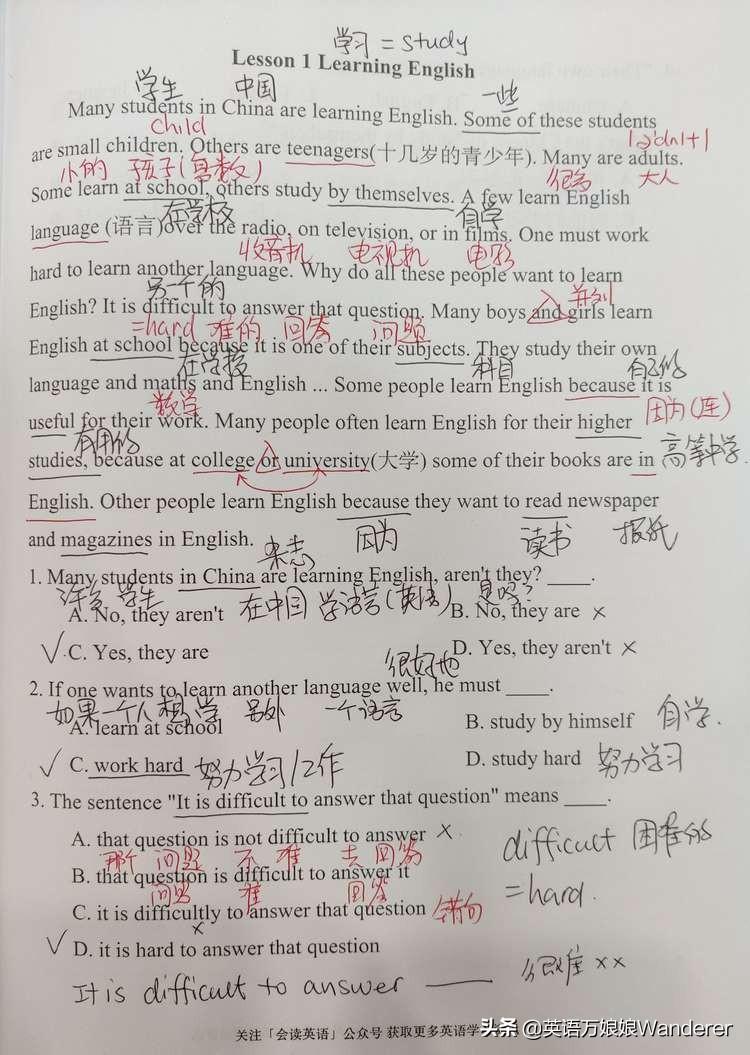 学习 = study
Lesson 1 Learning English
学生 中国 一些
Many students in China are learning English. Some of these students
child
are small children. Others are teenagers(十几岁的青少年). Many are adults.
小的 孩子(复数) 很多 大人
Some learn at school, others study by themselves. A few learn English
在学校 自学
language (语言)over the radio, on television, or in films. One must work
收音机 电视机 电影
hard to learn another language. Why do all these people want to learn
另一个的 并列
English? It is difficult to answer that question. Many boys and girls learn
=hard 难的 回答 问题
English at school because it is one of their subjects. They study their own
在学校 科目 自己的
language and maths and English ... Some people learn English because it is
数学
useful for their work. Many people often learn English for their higher 因为(连)
有用的
studies, because at college or university(大学) some of their books are in 高等中学.
English. Other people learn English because they want to read newspaper
and magazines in English. 因为 读书 报纸
杂志
1. Many students in China are learning English, aren't they? ____.
许多 学生 在中国 学语言(英语) 是吗?
A. No, they aren't B. No, they are ×
✓ C. Yes, they are D. Yes, they aren't ×
很好地
2. If one wants to learn another language well, he must ____.
如果一个人想学 另外 一个语言
A. learn at school B. study by himself 自学.
✓ C. work hard 努力学习/工作 D. study hard 努力学习
3. The sentence "It is difficult to answer that question" means ____.
A. that question is not difficult to answer × difficult 困难的
那个 问题 不 难 去 回答
B. that question is difficult to answer it =hard.
问题 难 回答
C. it is difficultly to answer that question 错句
×
✓ D. it is hard to answer that question
It is difficult to answer ____ 很难××
关注「会读英语」公众号 获取更多英语学
头条 @英语万娘娘Wanderer